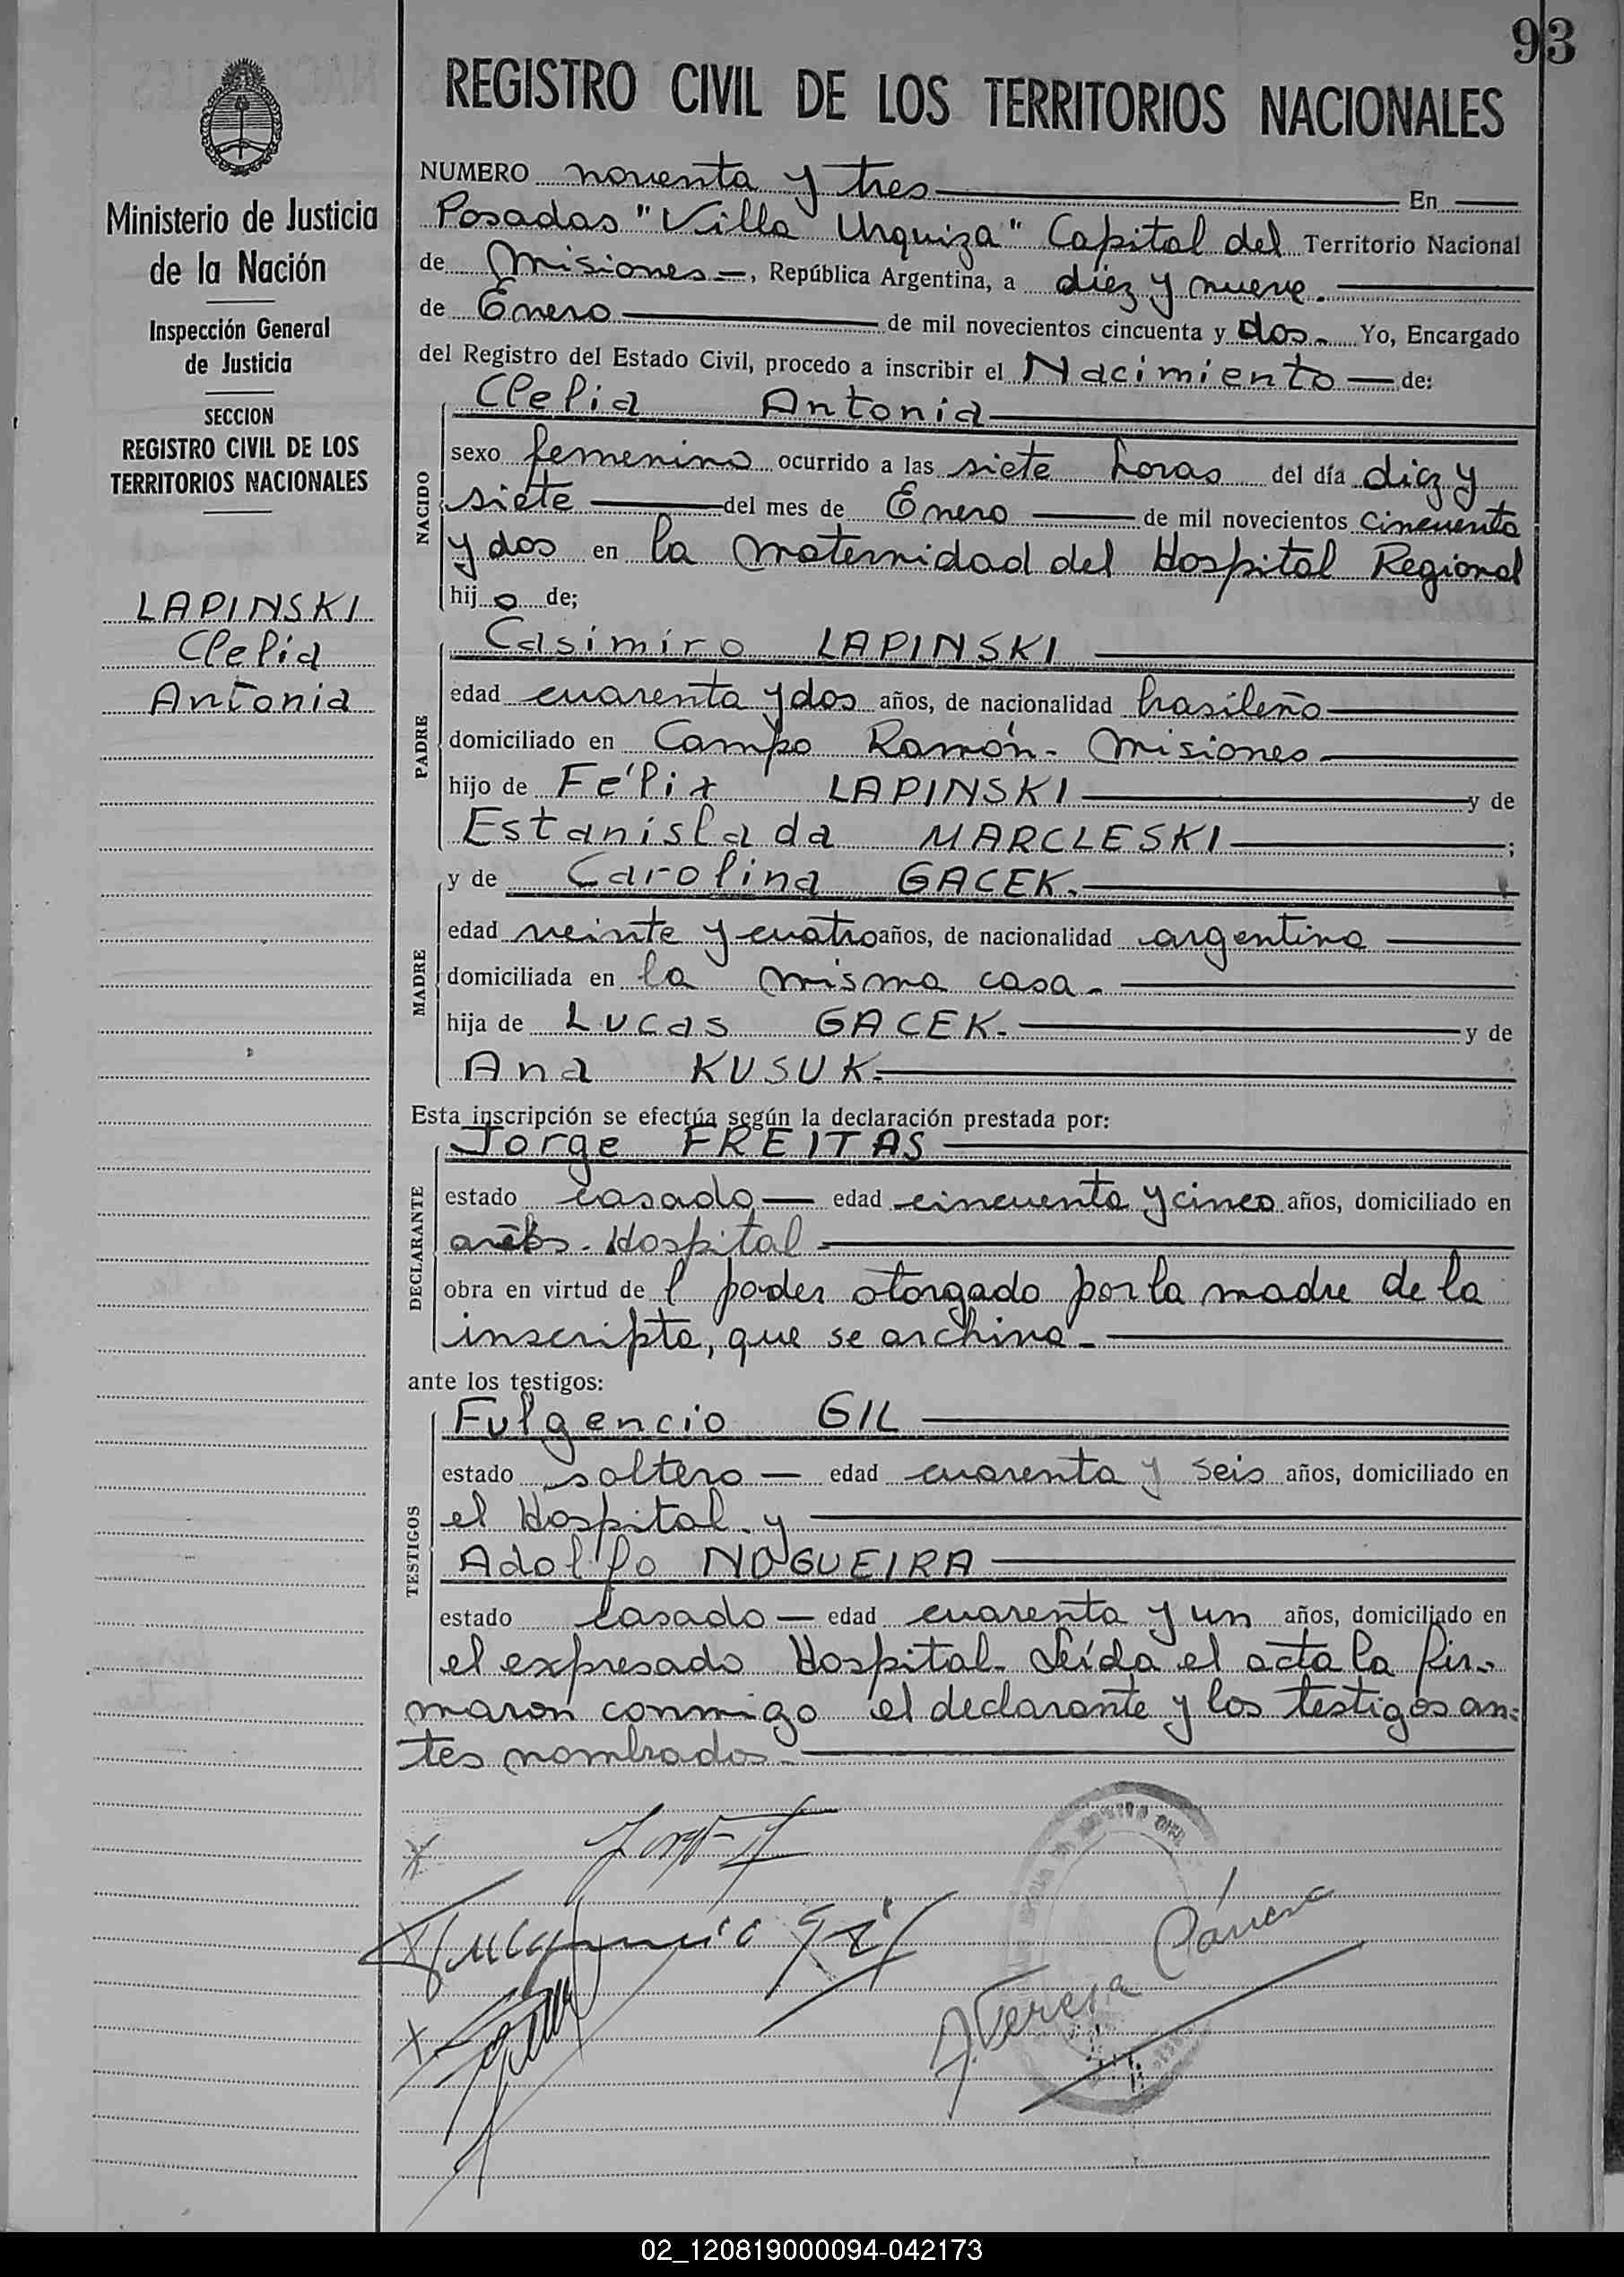 93
REGISTRO CIVIL DE LOS TERRITORIOS NACIONALES
Ministerio de Justicia
de la Nación
Inspección General
de Justicia
SECCION
REGISTRO CIVIL DE LOS
TERRITORIOS NACIONALES
LAPINSKI
Clelia
Antonia
NUMERO noventa y tres En
Posadas "Villa Urquiza" Capital del Territorio Nacional
de Misiones, República Argentina, a diez y nueve.
de Enero de mil novecientos cincuenta y dos Yo, Encargado
del Registro del Estado Civil, procedo a inscribir el Nacimiento de:
NACIDO
Clelia Antonia
sexo femenino ocurrido a las siete horas del día diez y
siete del mes de Enero de mil novecientos cincuenta
y dos en la maternidad del Hospital Regional
hij a de;
PADRE
Casimiro LAPINSKI
edad cuarenta y dos años, de nacionalidad brasileño
domiciliado en Campo Ramón - Misiones
hijo de Félix LAPINSKI y de
Estanislada MARCLESKI ;
MADRE
y de Carolina GACEK.
edad veinte y cuatro años, de nacionalidad argentina
domiciliada en la misma casa
hija de Lucas GACEK. y de
Ana KUSUK.
Esta inscripción se efectúa según la declaración prestada por:
DECLARANTE
Jorge FREITAS
estado casado edad cincuenta y cinco años, domiciliado en
Hospital
obra en virtud de l poder otorgado por la madre de la
inscripta, que se archiva
ante los testigos:
TESTIGOS
Fulgencio GIL
estado soltero edad cuarenta y seis años, domiciliado en
el Hospital y
Adolfo NOGUEIRA
estado casado edad cuarenta y un años, domiciliado en
el expresado Hospital. Leída el acta la fir-
maron conmigo el declarante y los testigos an=
tes nombrados
Fulgencio Gil
02_120819000094-042173